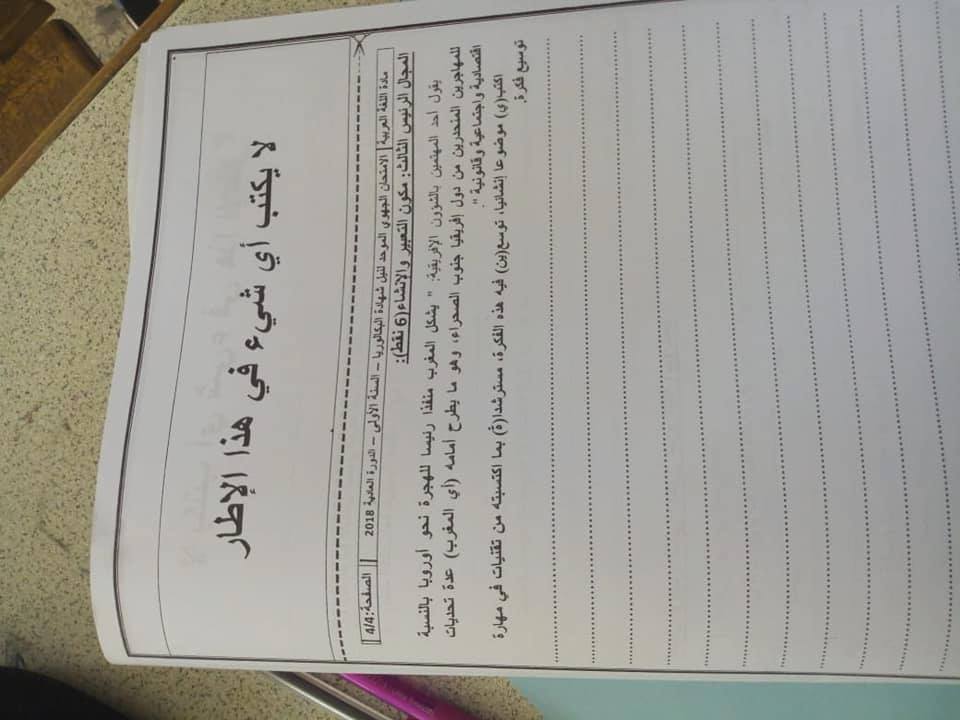 لا يكتب أي شيء في هذا الإطار
مادة اللغة العربية | الامتحان الجهوي الموحد لنيل شهادة البكالوريا – السنة الأولى – الدورة العادية 2018 | الصفحة:4/4
المجال الرئيس الثالث: مكون التعبير والإنشاء(6 نقط):
يقول أحد المهتمين بالشؤون الإفريقية: " يشكل المغرب منفذا رئيسا للهجرة نحو أوروبا بالنسبة
للمهاجرين المنحدرين من دول إفريقيا جنوب الصحراء، وهو ما يطرح أمامه (أي المغرب) عدة تحديات
اقتصادية واجتماعية وقانونية ".
اكتب(ي) موضوعا إنشائيا، توسع(ين) فيه هذه الفكرة، مسترشدا(ة) بما اكتسبته من تقنيات في مهارة
توسيع فكرة.